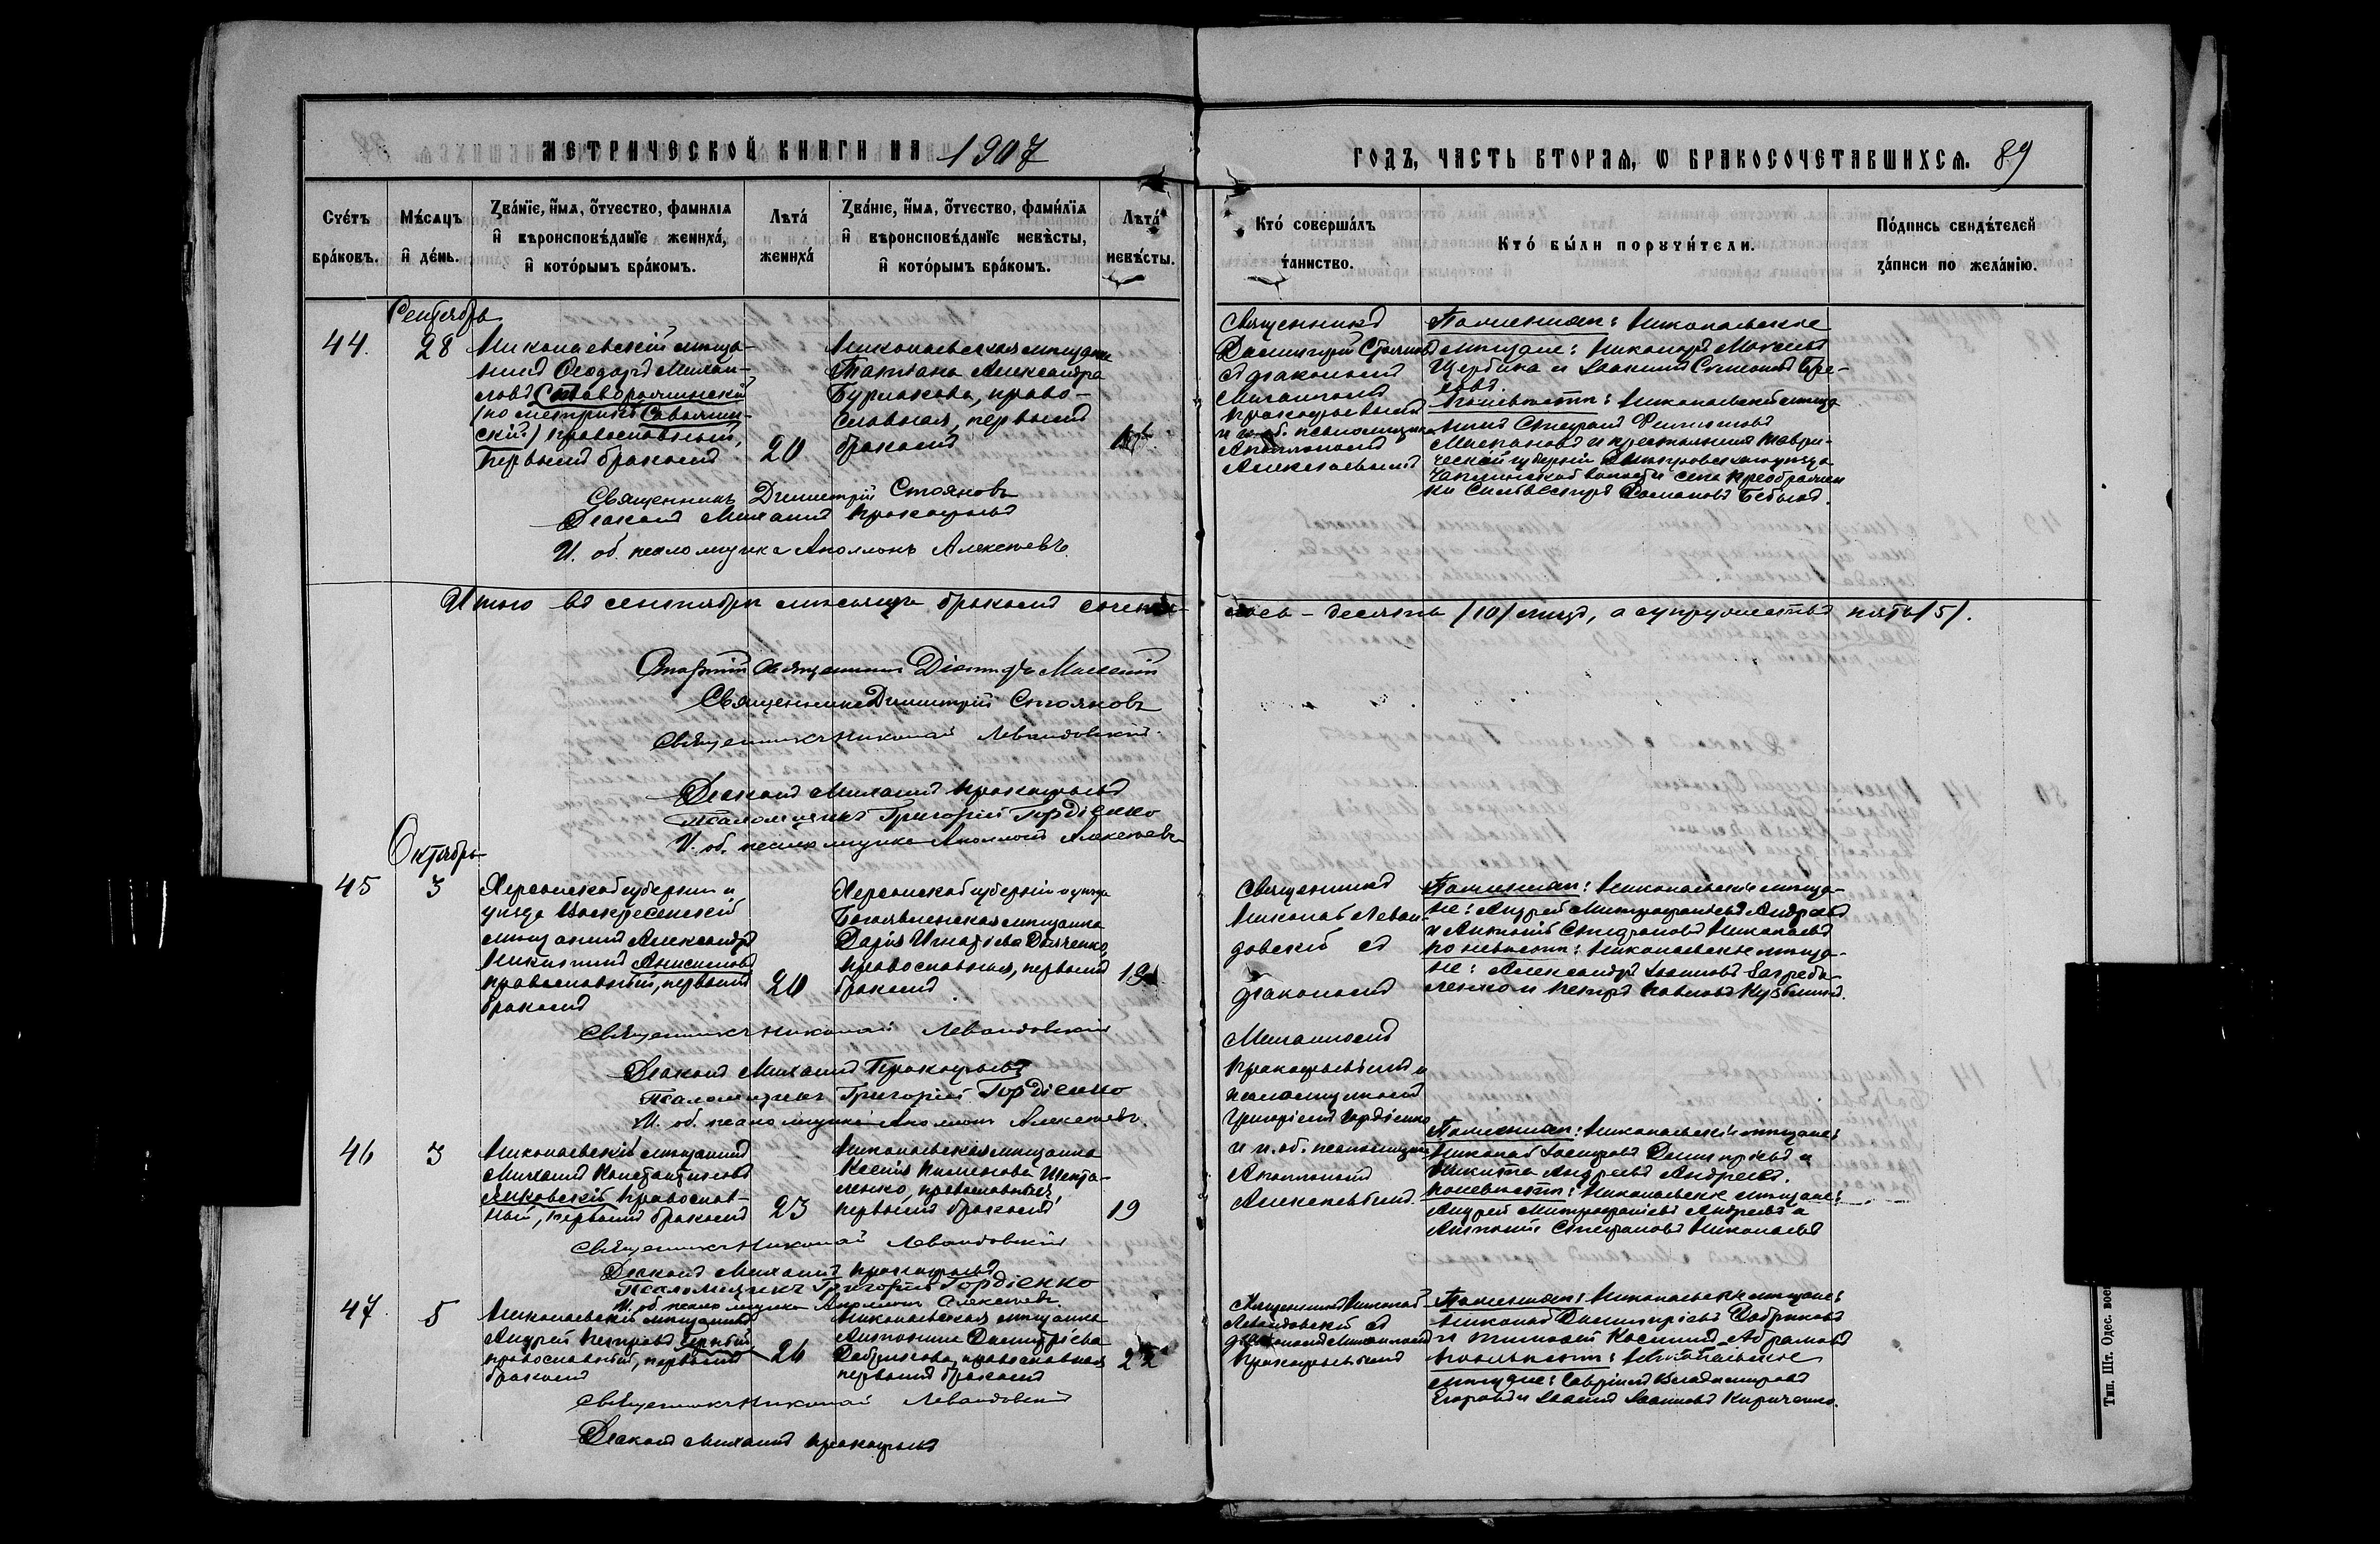 МЕТРИЧЕСКОЙ КНИГИ НА 1907
ГОДЪ, ЧАСТЬ ВТОРАЯ, Ѡ БРАКОСОЧЕТАВШИХСЯ. 89
Счетъ браковъ.
Мѣсяцъ и день.
Званіе, имя, отчество, фамилія
и вѣроисповѣданіе жениха,
и которымъ бракомъ.
Лѣта жениха
Званіе, имя, отчество, фамилія
и вѣроисповѣданіе невѣсты,
и которымъ бракомъ.
Лѣта невѣсты.
Кто совершалъ
таинство.
Кто были поручители.
Подпись свидѣтелей
записи по желанію.
Сентябрь
44.
28
Николаевскій мѣща-
нинъ Ѳеодоръ Михаи-
ловъ
православный,
первымъ бракомъ
20
Николаевская мѣщанка
Татіана Александра
Бурлакова, право-
славная, первымъ
бракомъ
Священникъ
Димитрій Стояновъ
съ діакономъ
Михаиломъ
Прокофьевымъ
и и. об. псаломщика
Аполлономъ
Алексѣевымъ
По женихѣ: Николаевскіе
мѣщане: Никаноръ
Щербина и Іоакимъ Симеоновъ
По невѣстѣ: Николаевскій мѣща-
нинъ Стефанъ Филиповъ
и крестьянинъ Таври-
ческой губерніи Днѣпровскаго уѣзда
волости села Преображен
ки Сильвестръ Романовъ
Священникъ Димитрій Стояновъ
Діаконъ Михаилъ Прокофьевъ
И. об. псаломщика Аполлонъ Алексѣевъ.
Итого въ сентябрѣ мѣсяцѣ бракомъ сочета-
лось - десять /10/ лицъ, а супружествъ пять /5/.
Старшій Священникъ
Священникъ Димитрій Стояновъ
Священникъ Николай Левандовскій.
Діаконъ Михаилъ Прокофьевъ
Псаломщикъ Григорій Гордіенко
И. об. псаломщика Аполлонъ Алексѣевъ
Октябрь
45
3
Херсонской губерніи и
уѣзда Воскресенскій
мѣщанинъ Александръ
Никитинъ Анисимовъ
православный, первымъ
бракомъ
20
Херсонской губерніи и уѣзда
Богоявленская мѣщанка
Дарія Игнатіева Дьяченко,
православная, первымъ
бракомъ
19
Священникъ
Николай Леван-
довскій съ
діакономъ
Михаиломъ
Прокофьевымъ и
псаломщикомъ
Григоріемъ Гордіенко
и и. об. псаломщика
Аполлономъ
Алексѣевымъ.
По женихѣ: Николаевскіе мѣща-
не: Андрей Митрофановъ Андреевъ
и Антоній Стефановъ Николаевъ
По невѣстѣ: Николаевскіе мѣща-
не: Александръ Іоанновъ Загребе-
ленко и Петръ Павловъ Кузьминъ.
Священникъ Николай Левандовскій
Діаконъ Михаилъ Прокофьевъ
Псаломщикъ Григорій Гордіенко
И. об. псаломщика Аполлонъ Алексѣевъ.
46
3
Николаевскій мѣщанинъ
Михаилъ Константиновъ
Янковскій православ-
ный, первымъ бракомъ
23
Николаевская мѣщанка
Ксенія
православная,
первымъ бракомъ
19
По женихѣ: Николаевскіе мѣщане:
Николай Іосифовъ Димитріевъ и
Никита Андреевъ Андреевъ.
По невѣстѣ: Николаевскіе мѣщане:
Андрей Митрофановъ Андреевъ и
Антоній Стефановъ Николаевъ
Священникъ Николай Левандовскій
Діаконъ Михаилъ Прокофьевъ
Псаломщикъ Григорій Гордіенко
И. об. псаломщика Аполлонъ Алексѣевъ.
47.
5
Николаевскій мѣщанинъ
Андрей Петровъ
православный, первымъ
бракомъ
26
Николаевская мѣщанка
Антонина Димитріева
православная
первымъ бракомъ
22
Священникъ Николай
Левандовскій съ
діакономъ Михаиломъ
Прокофьевымъ
По женихѣ: Николаевскіе мѣщане:
Николай Димитріевъ
и Тимофей Косминъ Абрамовъ
По невѣстѣ: Николаевскіе
мѣщане: Гавріилъ Владиміровъ
Егоровъ и Іоаннъ Іоанновъ Кириченко.
Священникъ Николай Левандовскій
Діаконъ Михаилъ Прокофьевъ